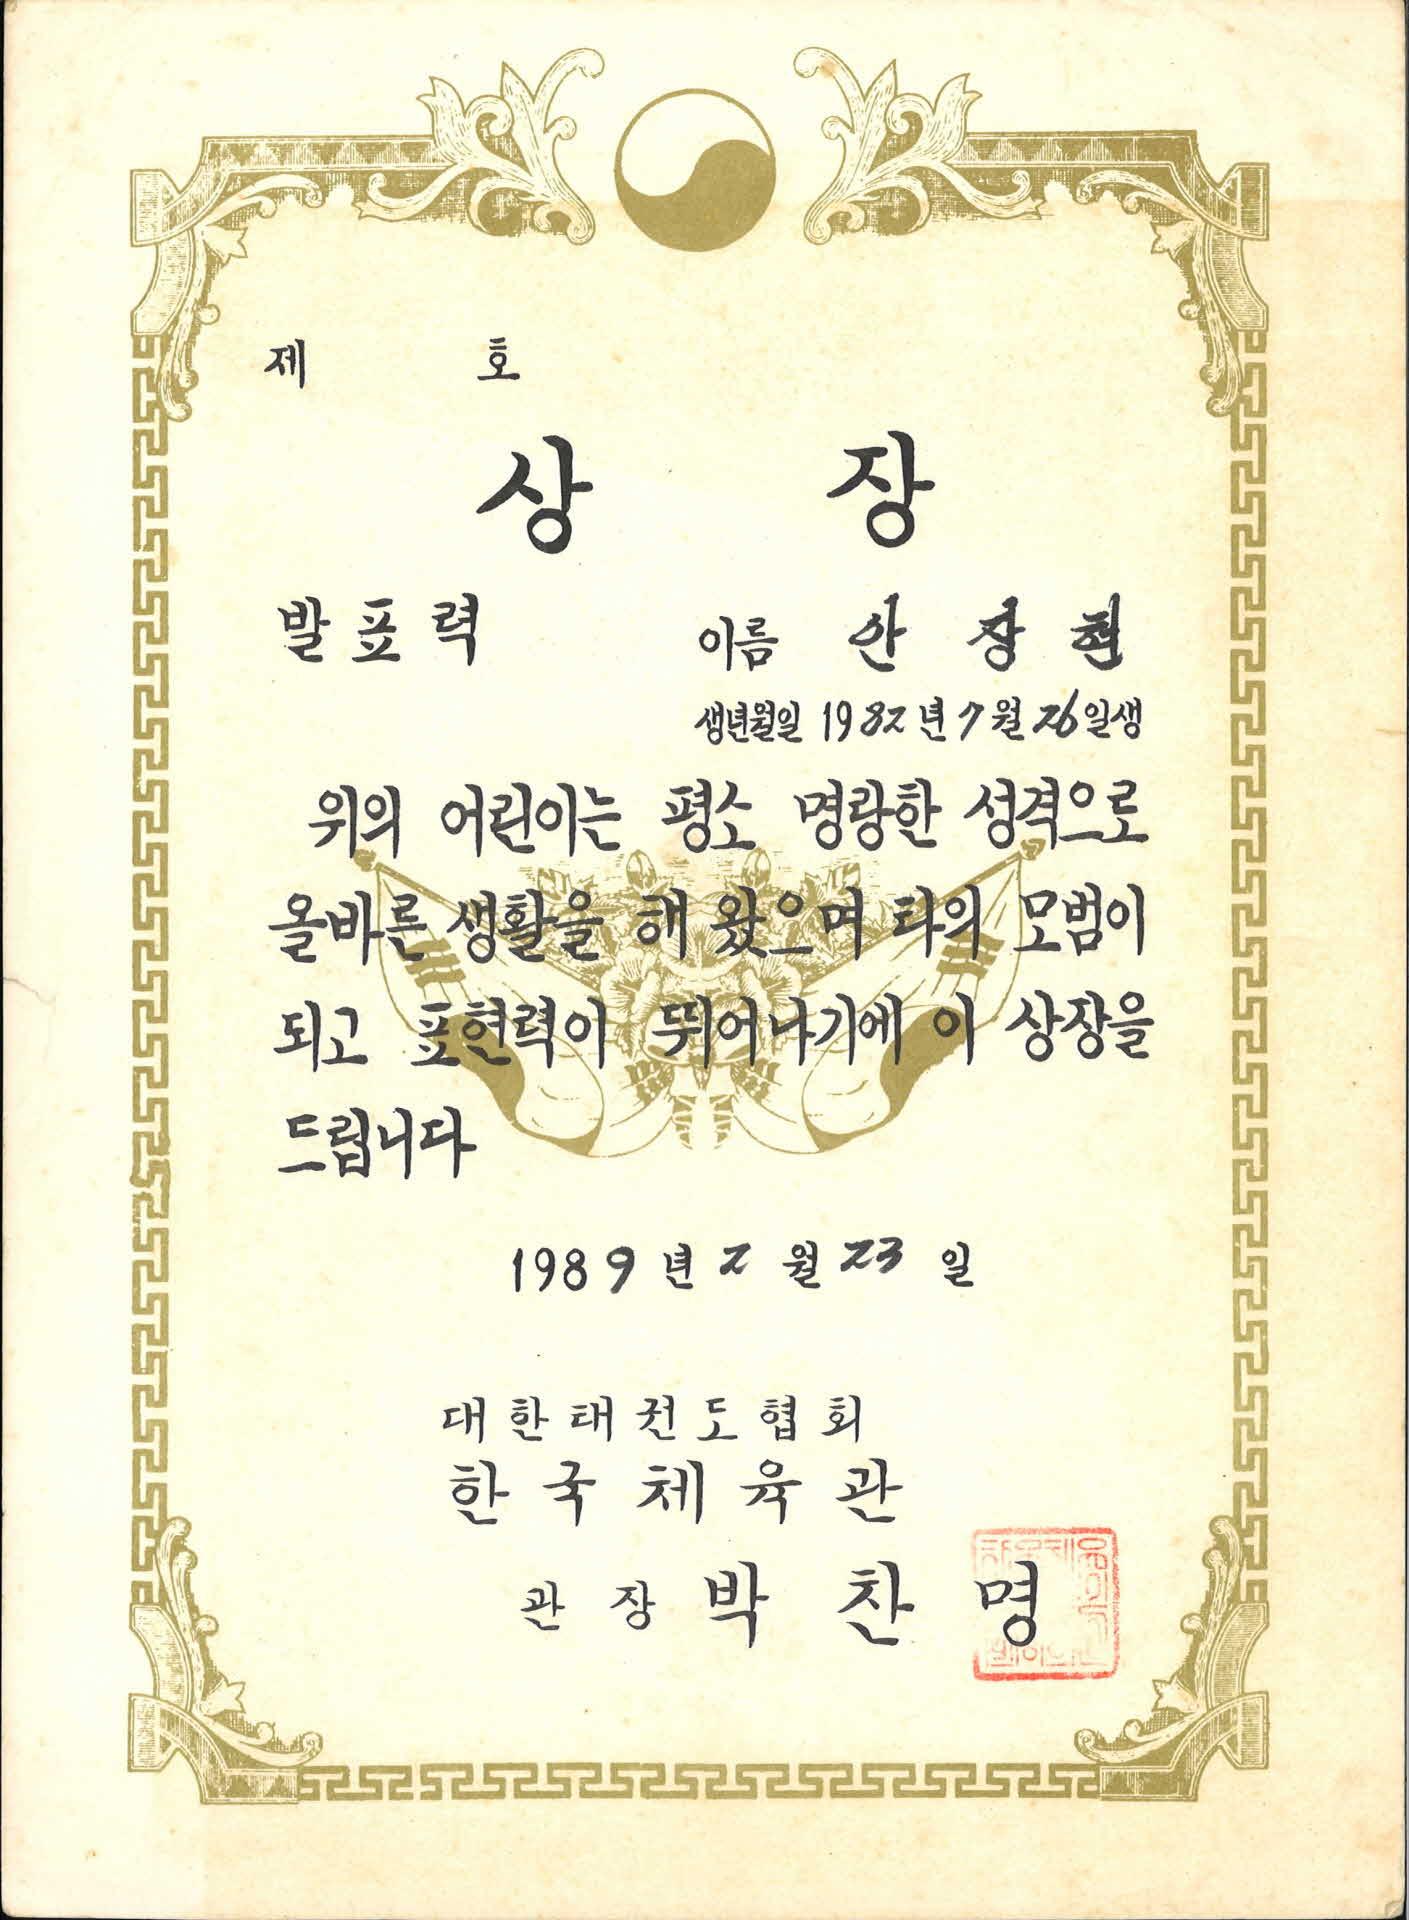 제 호
상 장
발표력
이름 안 장 현
생년월일 1982년 7월 26일생
위의 어린이는 평소 명랑한 성격으로
올바른 생활을 해 왔으며 타의 모범이
되고 표현력이 뛰어나기에 이 상장을
드립니다
1989년 2월 23일
대한태권도협회
한국체육관
관장 박찬명